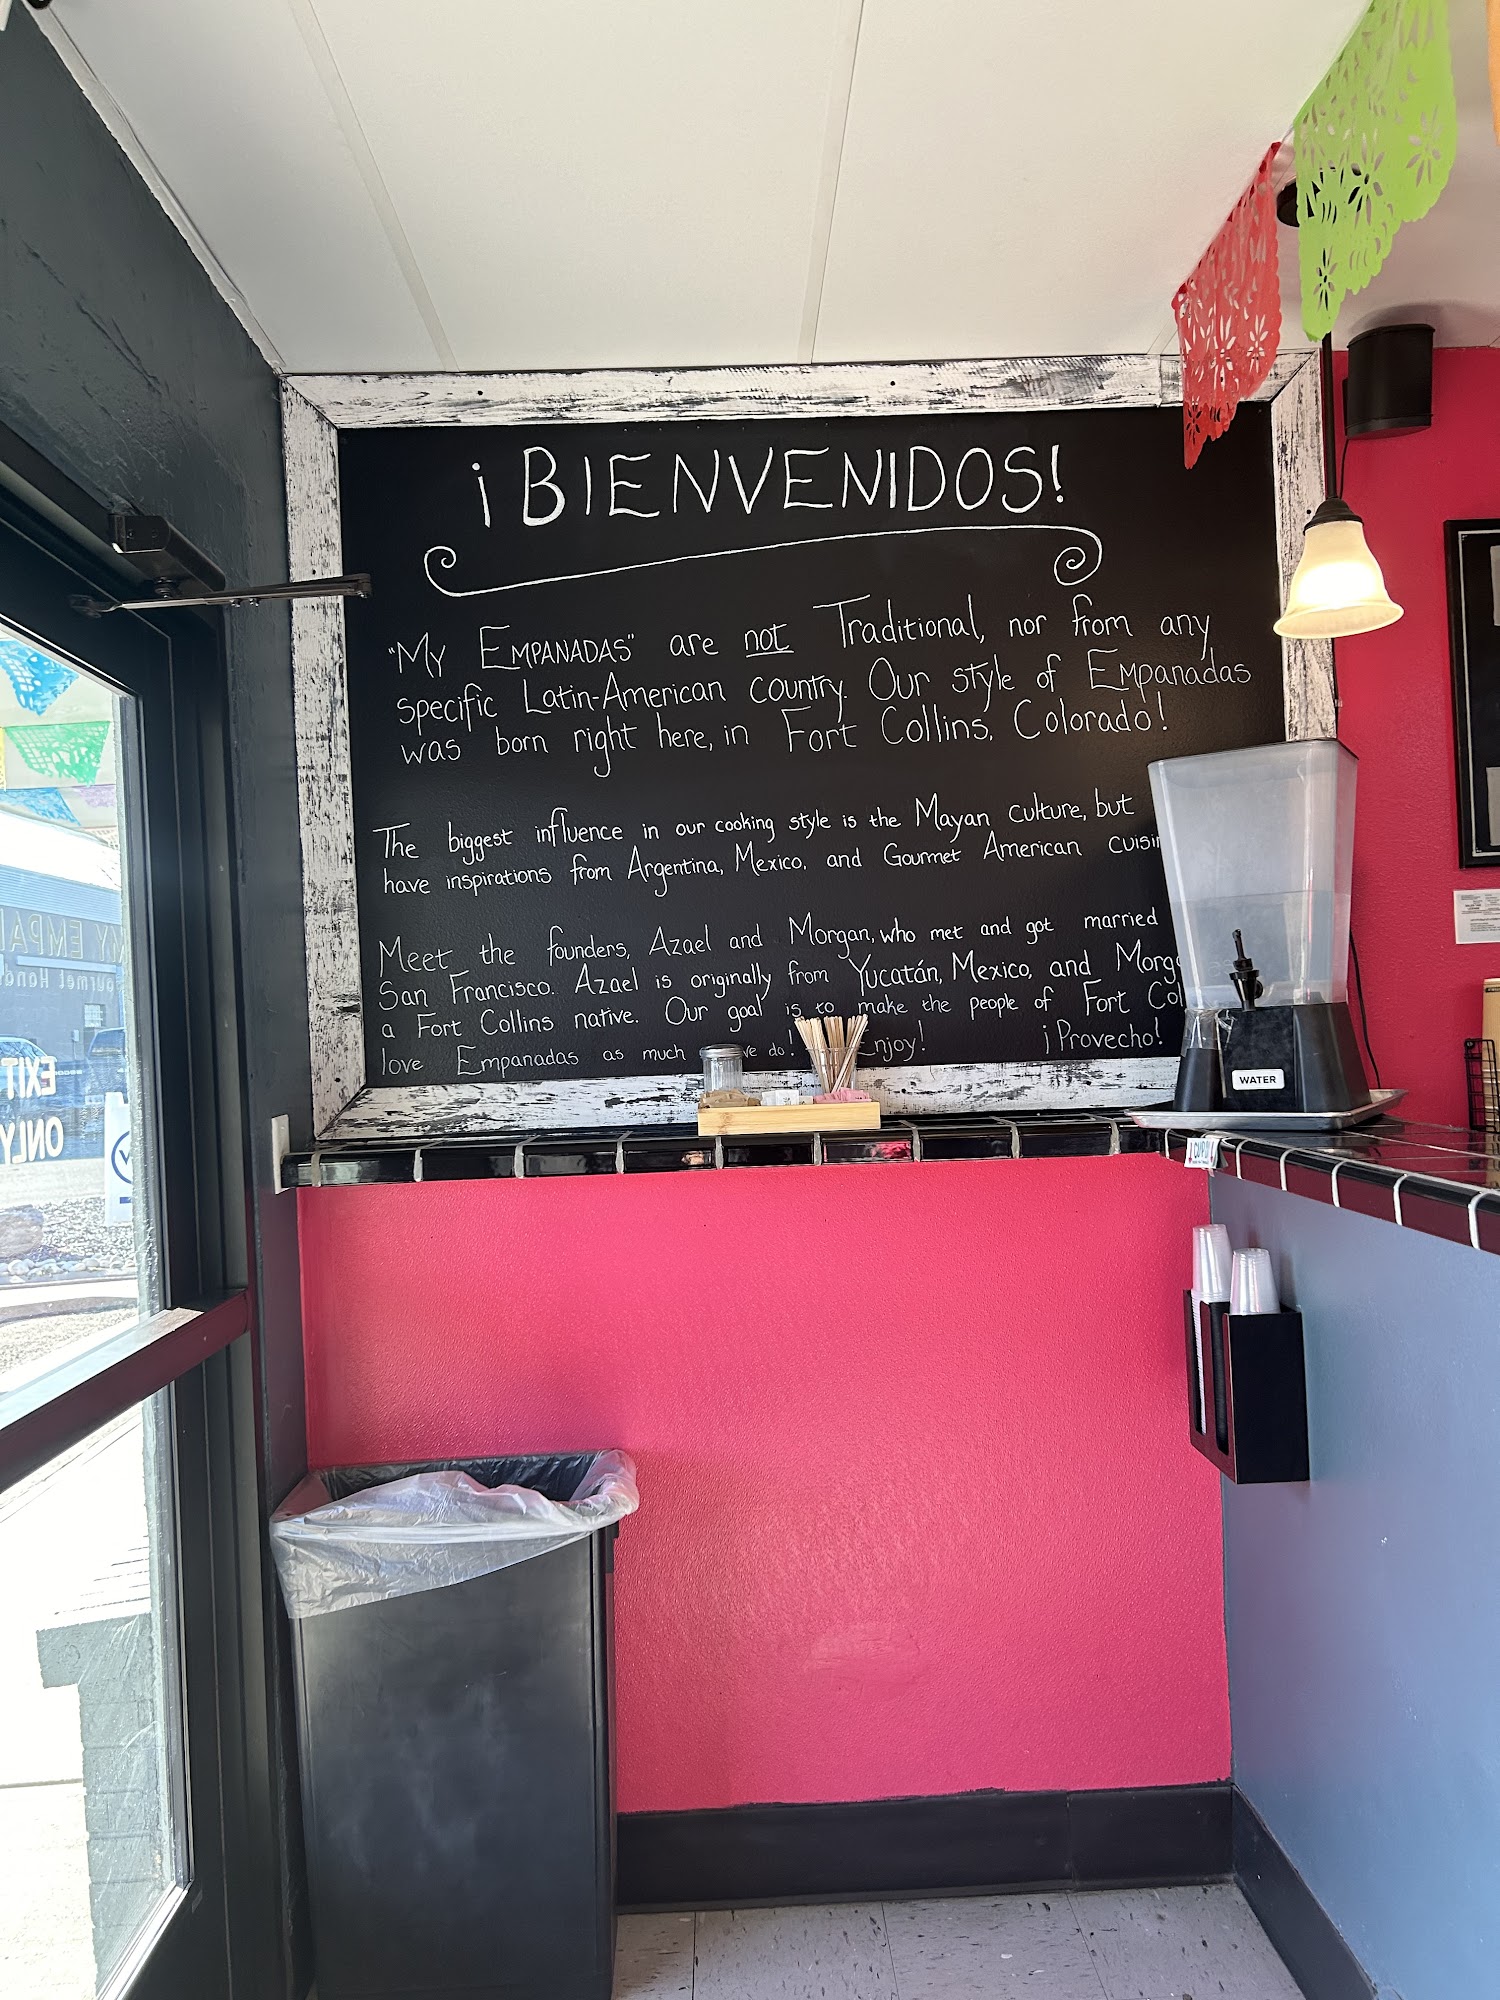 ¡BIENVENIDOS!
"MY EMPANADAS" are not Traditional, nor from any
specific Latin-American country. Our style of Empanadas
was born right here, in Fort Collins, Colorado!
The biggest influence in our cooking style is the Mayan culture, but
have inspirations from Argentina, Mexico, and Gourmet American cuisin
Meet the founders, Azael and Morgan, who met and got married
San Francisco. Azael is originally from Yucatán, Mexico, and Morg
a Fort Collins native. Our goal is to make the people of Fort Col
love Empanadas as much ve do! Enjoy! ¡Provecho!
WATER
MY EMPA
ourmet Hand
EXIT
ONLY